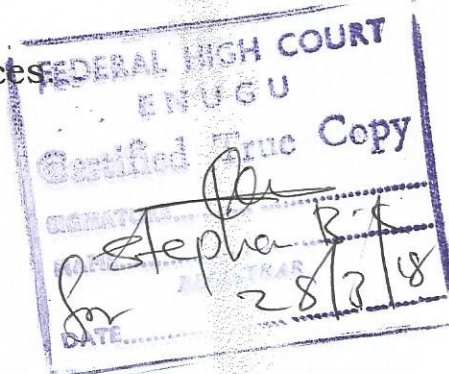 ces.
FEDERAL HIGH COURT
ENUGU
Certified True Copy
SIGNATURE
Stephen
REGISTRAR
for 28/3/18
DATE